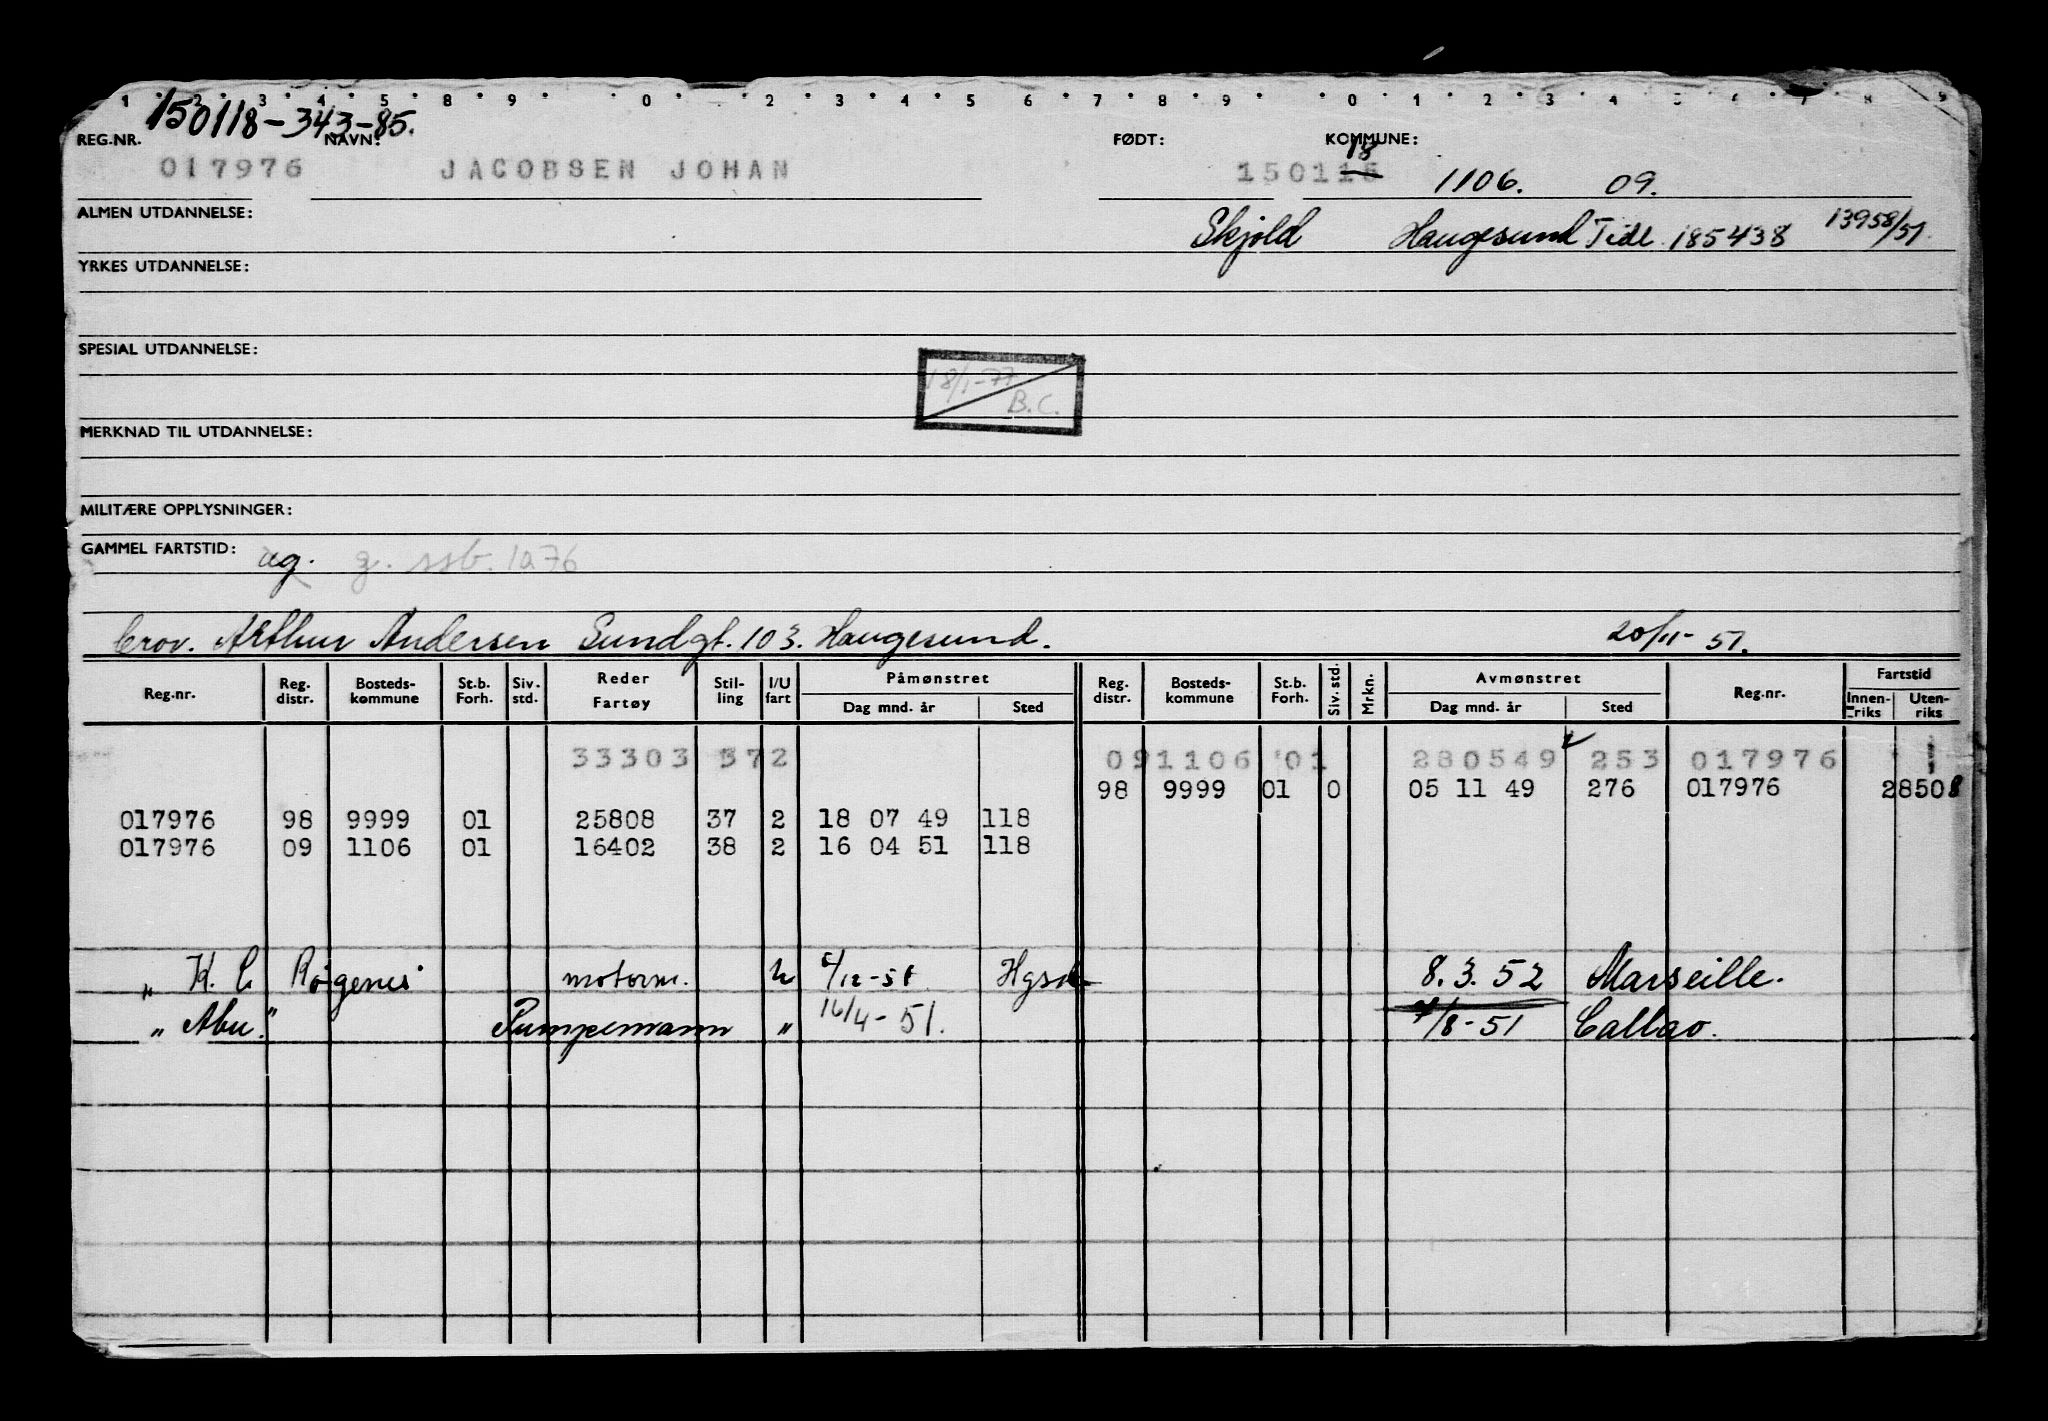 1 2 3 4 5 8 9 0 2 3 4 5 6 7 8 9 0 1 2 3 4 5 6 7 8 9
150118-343-85.
REG.NR. NAVN: FØDT: KOMMUNE:
18
017976 JACOBSEN JOHAN 150115 1106. 09.
ALMEN UTDANNELSE: Skjold Haugesund Tidl. 185438 13958/51
YRKES UTDANNELSE:
SPESIAL UTDANNELSE:
18/1-77
B.C.
MERKNAD TIL UTDANNELSE:
MILITÆRE OPPLYSNINGER:
GAMMEL FARTSTID: ug. g. ssb. 1a76
Arthur Andersen Sundgt. 103. Haugesund. 20/11-51.
Reg.nr. Reg. distr. Bosteds-kommune St.b. Forh. Siv. std. Reder Fartøy Stil-ling I/U fart Påmønstret Dag mnd. år Sted Reg. distr. Bosteds-kommune St.b. Forh. Siv. std. Mrkn. Avmønstret Dag mnd. år Sted Reg.nr. Fartstid Innen-riks Uten-riks
33303 372 091106 01 280549 253 017976
98 9999 01 0 05 11 49 276 017976 28508
017976 98 9999 01 25808 37 2 18 07 49 118
017976 09 1106 01 16402 38 2 16 04 51 118
„ H. C. Røgenes motorm. U /12-51 Hgsd 8.3.52 Marseille.
„ Abu." Pumpemann „ 16/4-51. /8-51 Callao.